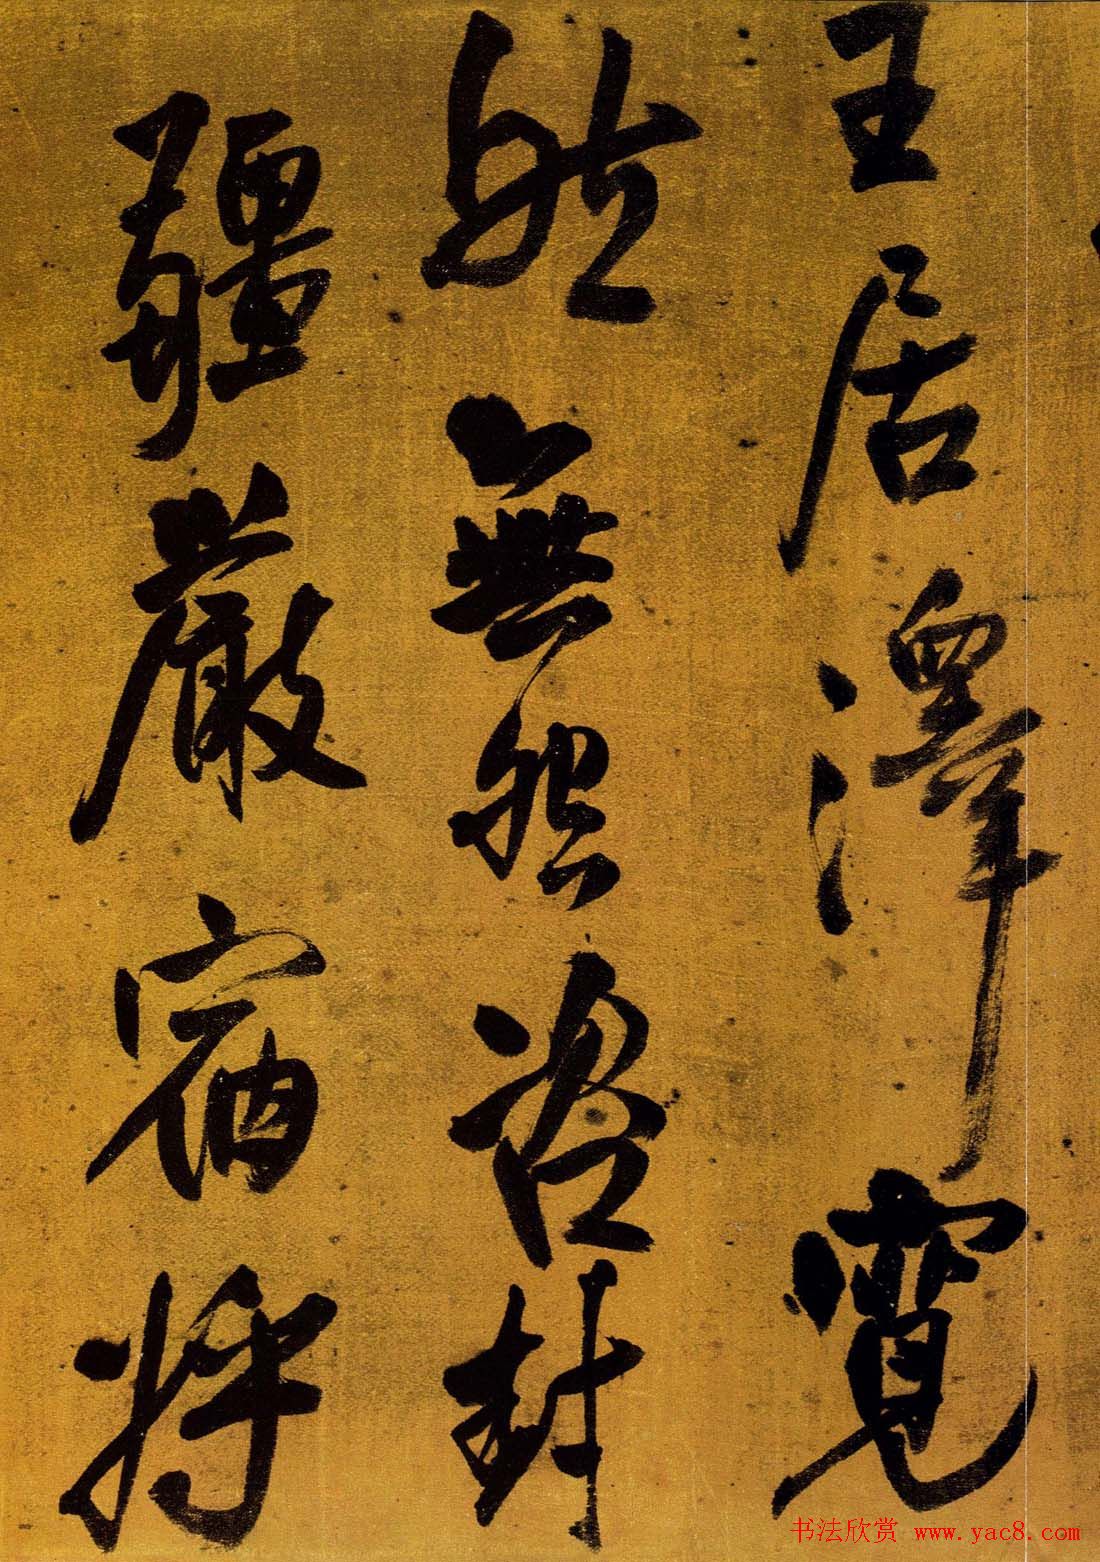 王居澤寬
能無怨咨封
疆嚴宿將
书法欣赏 www.yac8.com